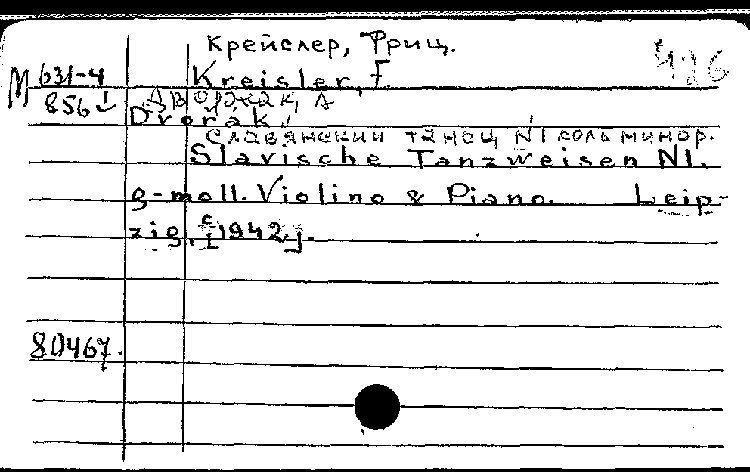 Крейслер, Фриц.
426
М 631-4
856
Kreisler, F.
Дворжак, А
Dvořák,
Славянский танец N1 соль минор.
Slavische Tanzweisen N1.
g-moll. Violino & Piano. Leip-
zig, [c 1942.].
80467.